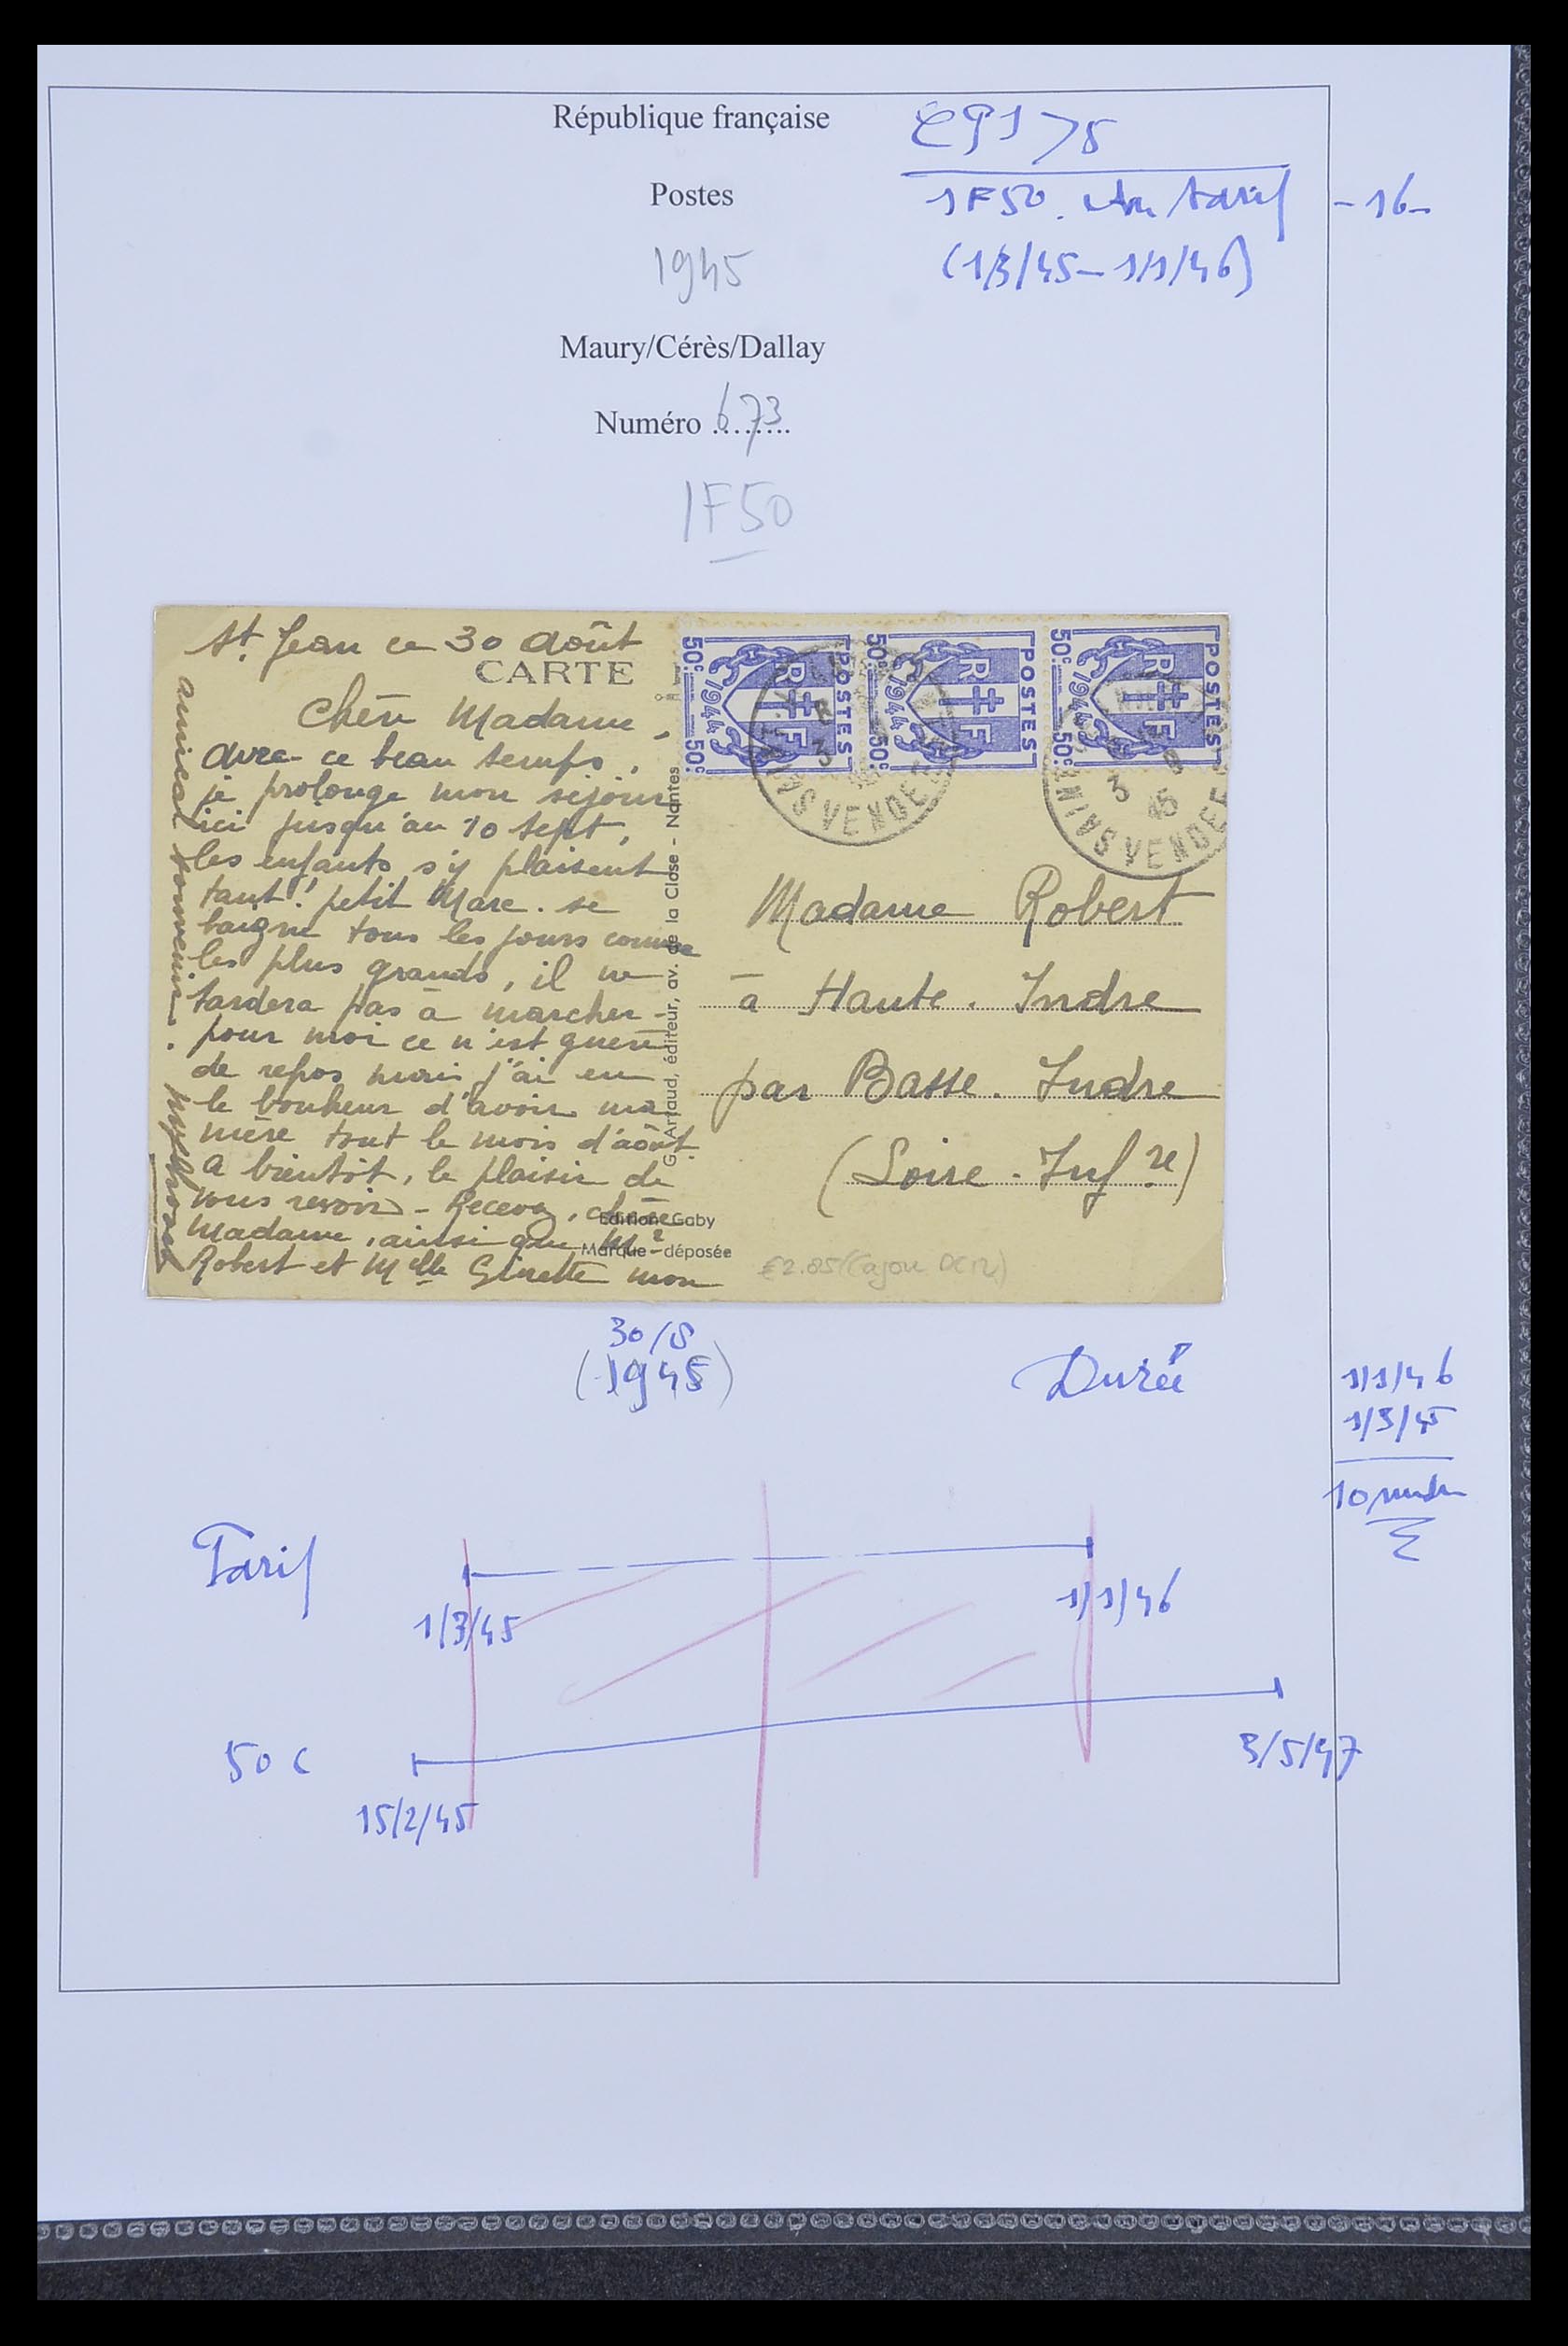 République française
Postes
1945
Maury/Cérès/Dallay
Numéro 673
1F50
CP 5
1F50. Au tarif
(1/3/45-1/1/46)
-16-
St. Jean ce 30 août
CARTE
Chère Madame,
Avec ce beau temps,
je prolonge mon séjour
ici jusqu'au 10 sept,
les enfants s'y plaisent
tant! petit Marc. se
baigne tous les jours comme
les plus grands, il ne
tardera pas à marcher -
pour moi ce n'est guère
de repos mais j'ai eu
le bonheur d'avoir ma
mère tout le mois d'août.
A bientôt, le plaisir de
vous revoir - Recevez, chère
Madame, ainsi que Mr
Robert et Melle Ginette mon
amical souvenir.
G. Artaud, éditeur, av. de la Close - Nantes
Edition Gaby
Marque déposée
50c 1944 50c
RF
POSTES
50c 1944 50c
RF
POSTES
50c 1944 50c
RF
POSTES
VENDEE
3
45
VENDEE
Madame Robert
à Haute. Indre
par Basse. Indre
(Loire-Infre)
€2.85
30/8
(1945)
Durée
1/1/46
1/3/45
10 mois
Tarif
1/3/45
1/1/46
50 c
15/2/45
3/5/47